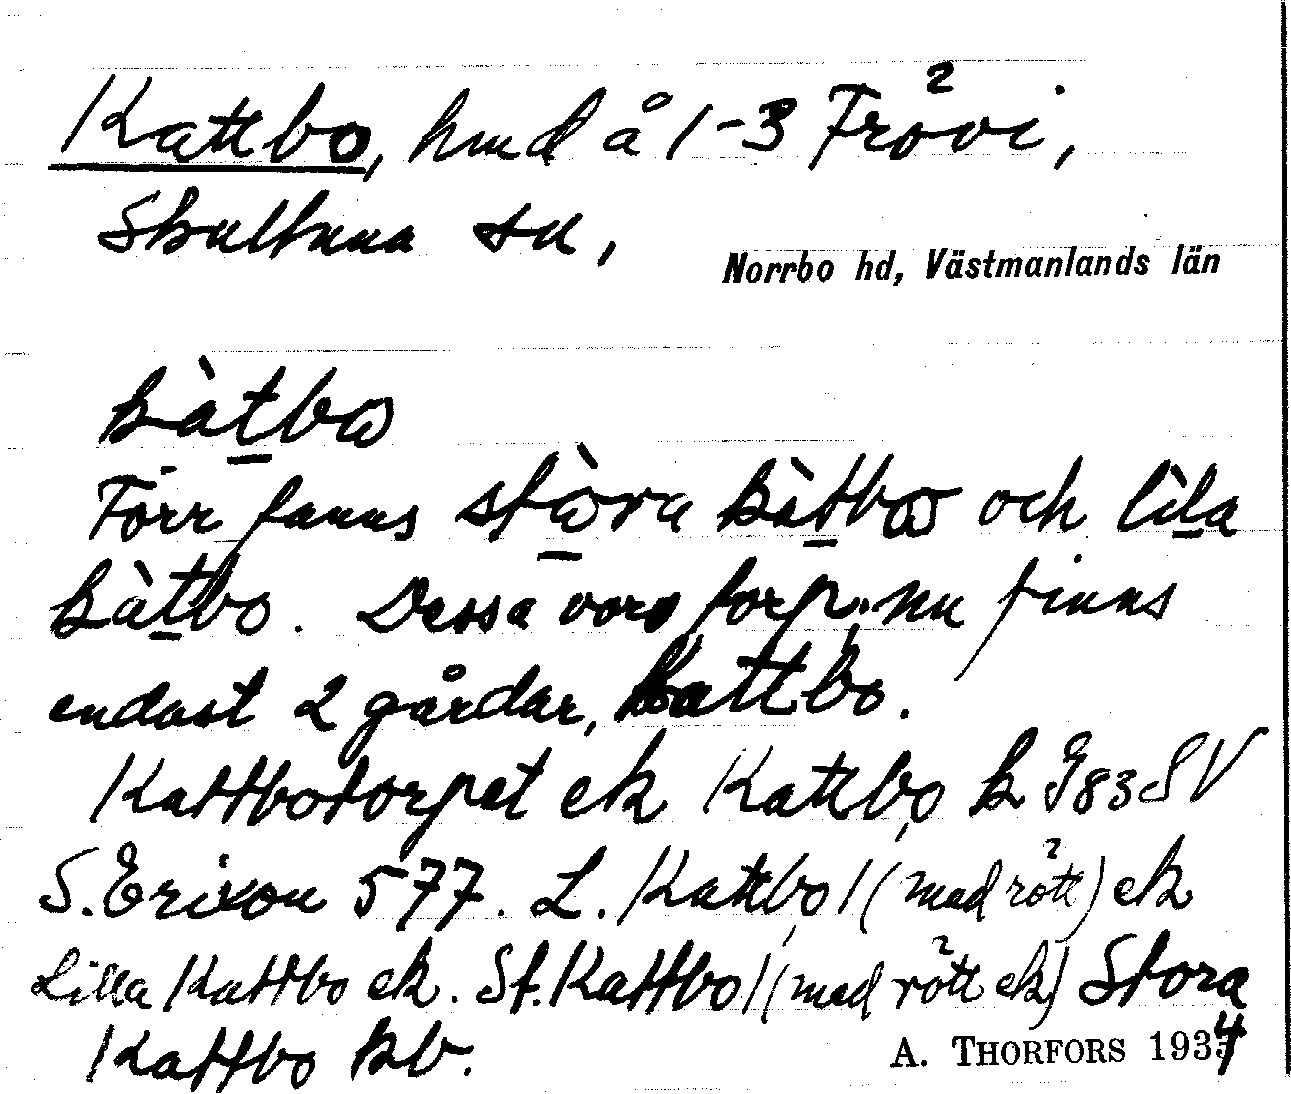 Kattbo, hmd å 1-3 Frövi,
Skultuna sn,
Norrbo hd, Västmanlands län
kàtbω
Förr fanns stὼra kàtbω och lìla
kàtbo. Dessa voro torp, nu finns
endast 2 gårdar, Kattbo.
Kattbotorpet ek Kattbo k J83SV
S. Erixon 577. L. Kattbo l (med rött) ek
Lilla Kattbo ek. St. Kattbo l (med rött ek) Stora
Kattbo kb.
A. THORFORS 1934